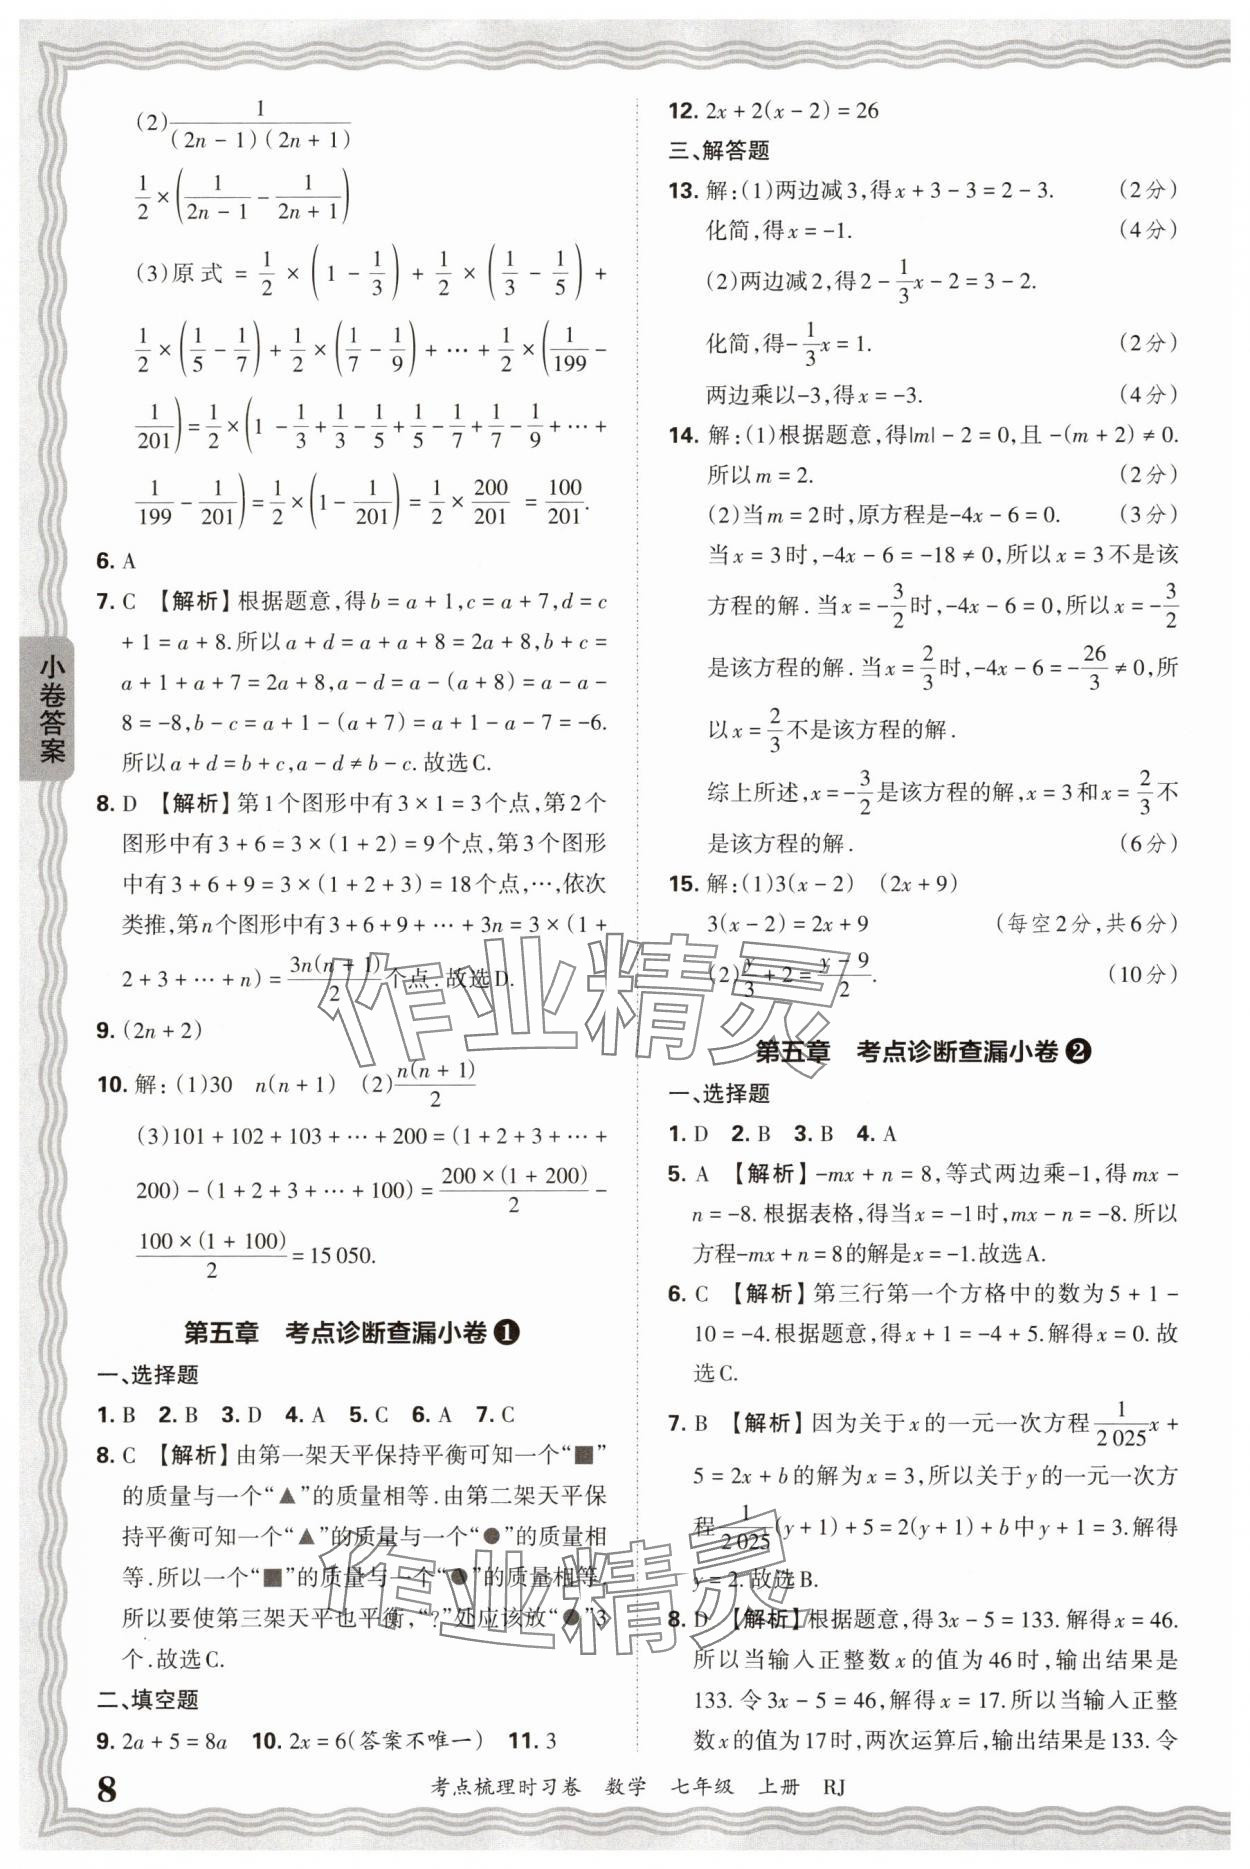 (2) 1/((2n－1)(2n＋1))
1/2×(1/(2n－1)－1/(2n＋1))
(3)原式＝1/2×(1－1/3)＋1/2×(1/3－1/5)＋
1/2×(1/5－1/7)＋1/2×(1/7－1/9)＋…＋1/2×(1/199－
1/201)＝1/2×(1－1/3＋1/3－1/5＋1/5－1/7＋1/7－1/9＋…＋
1/199－1/201)＝1/2×(1－1/201)＝1/2×200/201＝100/201.
6. A
7. C 【解析】根据题意,得b＝a＋1,c＝a＋7,d＝c
＋1＝a＋8.所以a＋d＝a＋a＋8＝2a＋8,b＋c＝
a＋1＋a＋7＝2a＋8,a－d＝a－(a＋8)＝a－a－
8＝－8,b－c＝a＋1－(a＋7)＝a＋1－a－7＝－6.
所以a＋d＝b＋c,a－d≠b－c.故选C.
8. D 【解析】第1个图形中有3×1＝3个点,第2个
图形中有3＋6＝3×(1＋2)＝9个点,第3个图形
中有3＋6＋9＝3×(1＋2＋3)＝18个点,…,依次
类推,第n个图形中有3＋6＋9＋…＋3n＝3×(1＋
2＋3＋…＋n)＝3n(n＋1)/2个点.故选D.
9. (2n＋2)
10. 解:(1)30 n(n＋1) (2)n(n＋1)/2
(3)101＋102＋103＋…＋200＝(1＋2＋3＋…＋
200)－(1＋2＋3＋…＋100)＝200×(1＋200)/2－
100×(1＋100)/2＝15 050.
第五章 考点诊断查漏小卷❶
一、选择题
1. B 2. B 3. D 4. A 5. C 6. A 7. C
8. C 【解析】由第一架天平保持平衡可知一个“■”
的质量与一个“▲”的质量相等.由第二架天平保
持平衡可知一个“▲”的质量与一个“●”的质量相
等.所以一个“■”的质量与一个“●”的质量相等.
所以要使第三架天平也平衡,“?”处应该放“●”3
个.故选C.
二、填空题
9. 2a＋5＝8a 10. 2x＝6(答案不唯一) 11. 3
12. 2x＋2(x－2)＝26
三、解答题
13. 解:(1)两边减3,得x＋3－3＝2－3. (2分)
化简,得x＝－1. (4分)
(2)两边减2,得2－1/3x－2＝3－2.
化简,得－1/3x＝1. (2分)
两边乘以－3,得x＝－3. (4分)
14. 解:(1)根据题意,得|m|－2＝0,且－(m＋2)≠0.
所以m＝2. (2分)
(2)当m＝2时,原方程是－4x－6＝0. (3分)
当x＝3时,－4x－6＝－18≠0,所以x＝3不是该
方程的解.当x＝－3/2时,－4x－6＝0,所以x＝－3/2
是该方程的解.当x＝2/3时,－4x－6＝－26/3≠0,所
以x＝2/3不是该方程的解.
综上所述,x＝－3/2是该方程的解,x＝3和x＝2/3不
是该方程的解. (6分)
15. 解:(1)3(x－2) (2x＋9)
3(x－2)＝2x＋9 (每空2分,共6分)
(2)y/3＋2＝(y－9)/2. (10分)
第五章 考点诊断查漏小卷❷
一、选择题
1. D 2. B 3. B 4. A
5. A 【解析】－mx＋n＝8,等式两边乘－1,得mx－
n＝－8.根据表格,得当x＝－1时,mx－n＝－8.所以
方程－mx＋n＝8的解是x＝－1.故选A.
6. C 【解析】第三行第一个方格中的数为5＋1－
10＝－4.根据题意,得x＋1＝－4＋5.解得x＝0.故
选C.
7. B 【解析】因为关于x的一元一次方程1/2 025x＋
5＝2x＋b的解为x＝3,所以关于y的一元一次方
程1/2 025(y＋1)＋5＝2(y＋1)＋b中y＋1＝3.解得
y＝2.故选B.
8. D 【解析】根据题意,得3x－5＝133.解得x＝46.
所以当输入正整数x的值为46时,输出结果是
133.令3x－5＝46,解得x＝17.所以当输入正整
数x的值为17时,两次运算后,输出结果是133.令
小卷答案
8
考点梳理时习卷 数学 七年级 上册 RJ
作业精灵
作业精灵